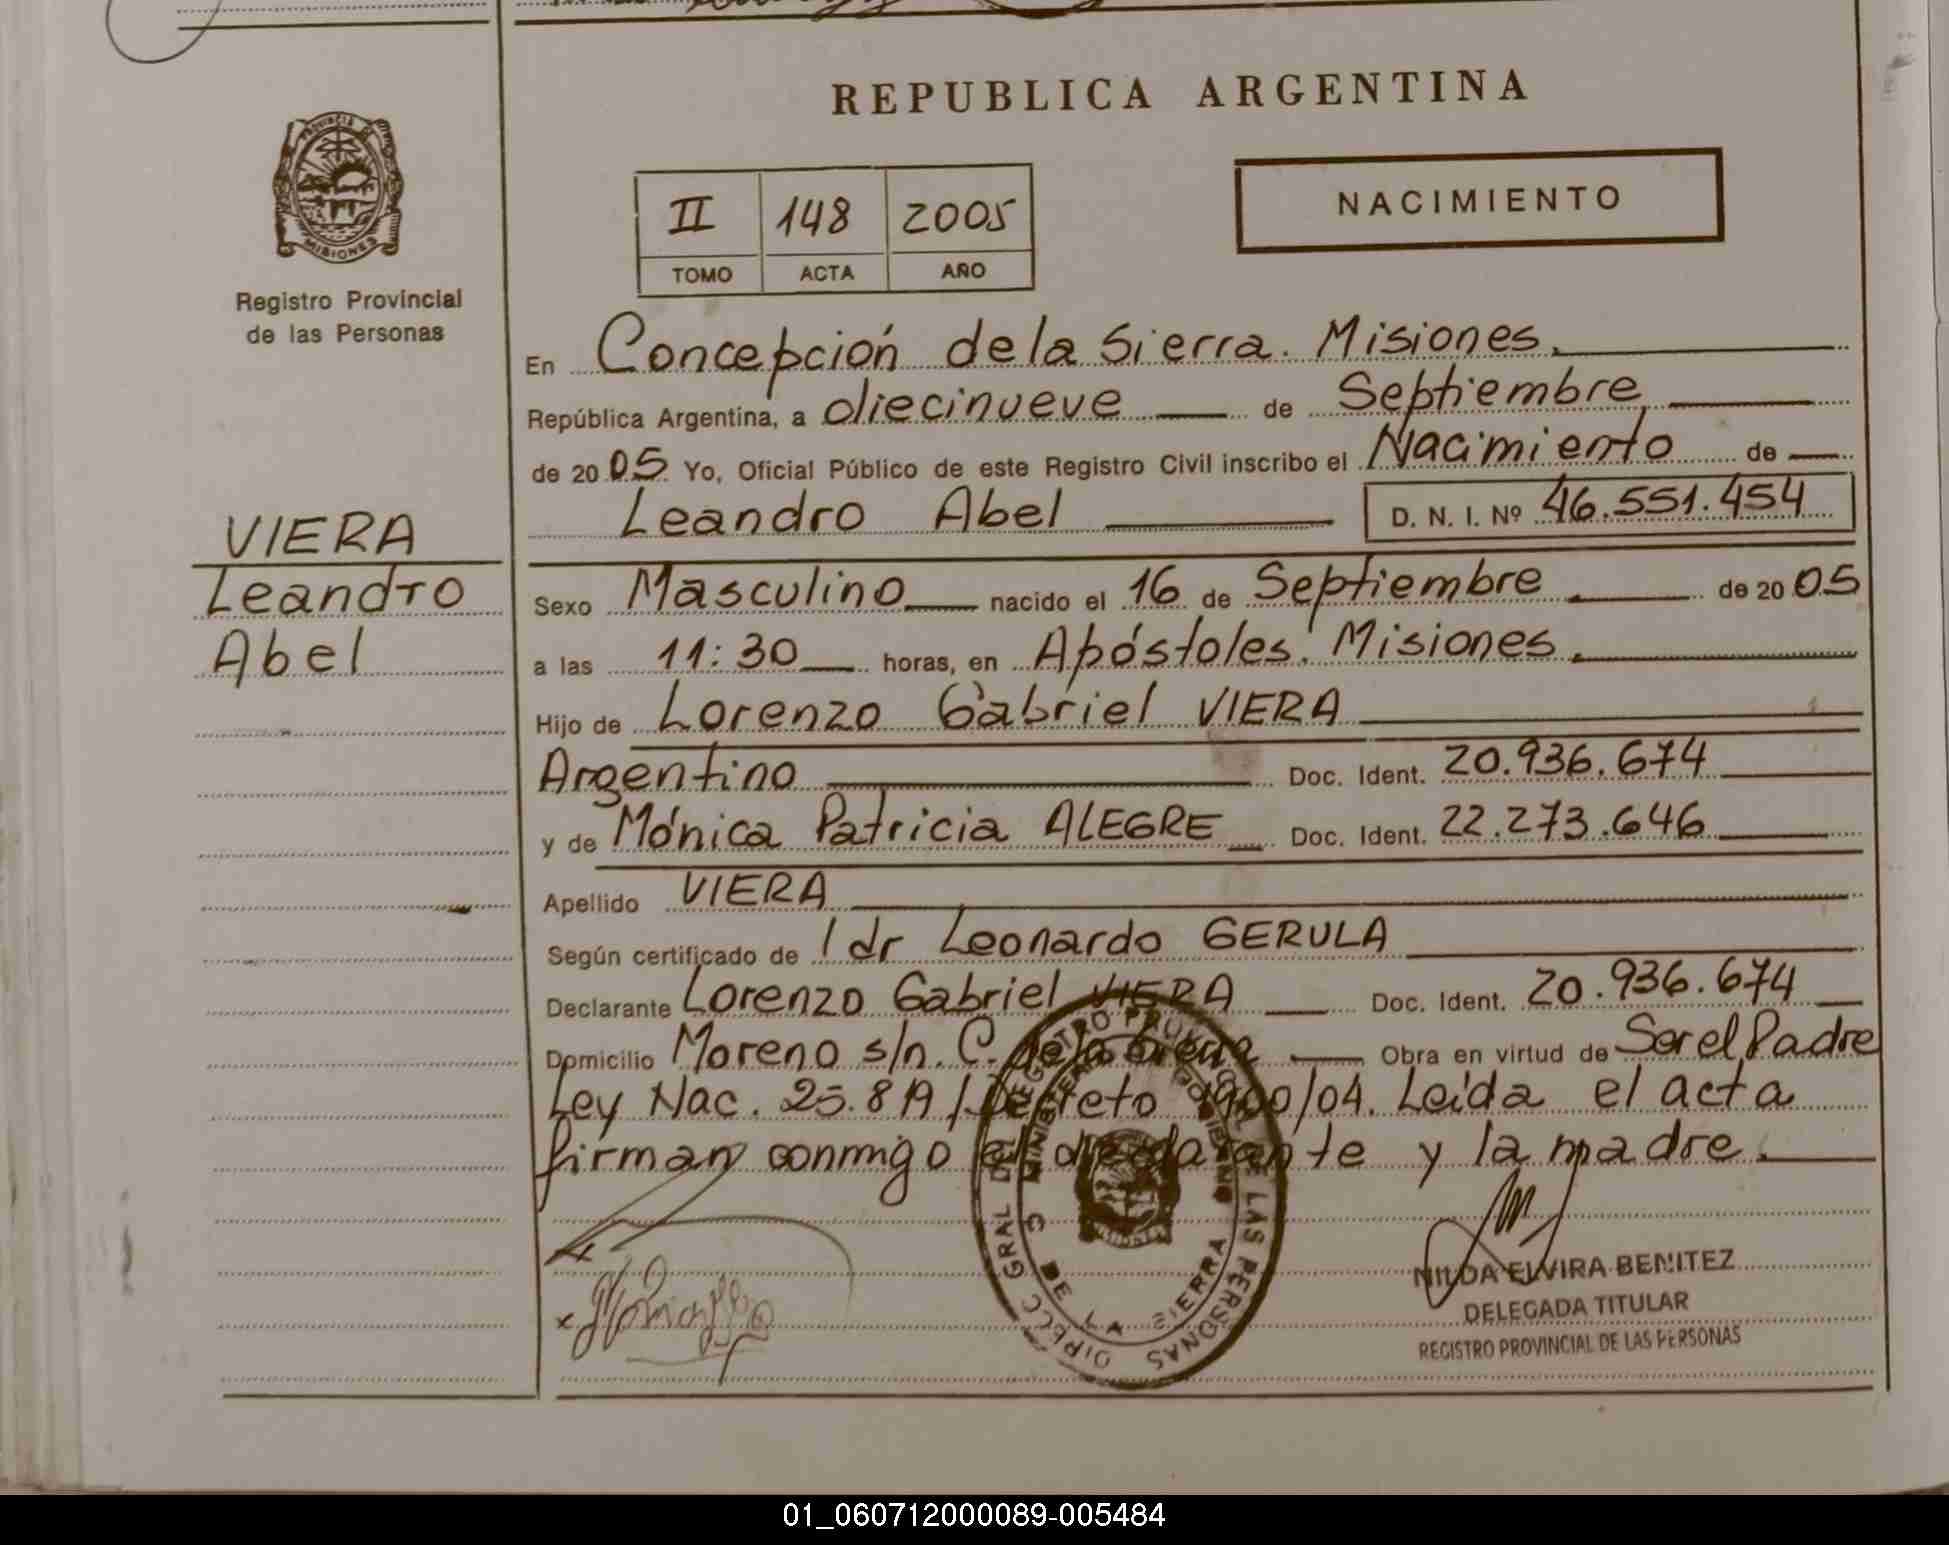 REPUBLICA ARGENTINA
PROVINCIA DE
MISIONES
Registro Provincial
de las Personas
II 148 2005
TOMO ACTA AÑO
NACIMIENTO
VIERA
Leandro
Abel
En Concepción de la Sierra. Misiones.
República Argentina, a diecinueve de Septiembre
de 2005 Yo, Oficial Público de este Registro Civil inscribo el Nacimiento de
Leandro Abel D. N. I. Nº 46.551.454
Sexo Masculino nacido el 16 de Septiembre de 2005
a las 11:30 horas, en Apóstoles. Misiones.
Hijo de Lorenzo Gabriel VIERA
Argentino Doc. Ident. 20.936.674
y de Mónica Patricia ALEGRE Doc. Ident. 22.273.646
Apellido VIERA
Según certificado de l dr Leonardo GERULA
Declarante Lorenzo Gabriel VIERA Doc. Ident. 20.936.674
Domicilio Moreno s/n. C. de la Sierra Obra en virtud de Ser el Padre
Ley Nac. 25.819/Decreto 1900/04. Leída el acta
firman conmigo el declarante y la madre.
NILDA ELVIRA BENITEZ
DELEGADA TITULAR
REGISTRO PROVINCIAL DE LAS PERSONAS
01_060712000089-005484